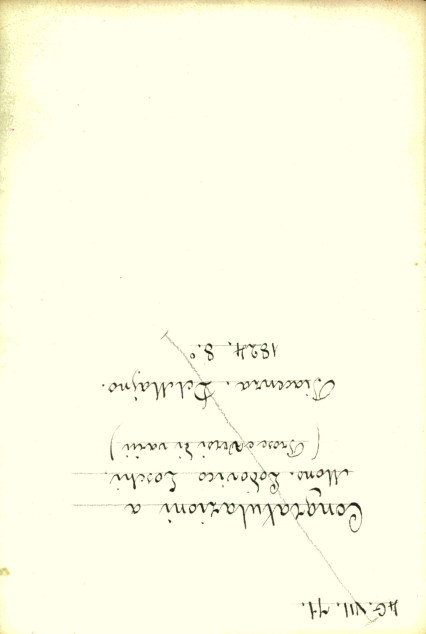 AG. VII. 71.
Congratulazioni a
Mons. Lodovico Loschi.
(Prose e Versi di varii)
Piacenza. Del Majno.
1824. 8.º